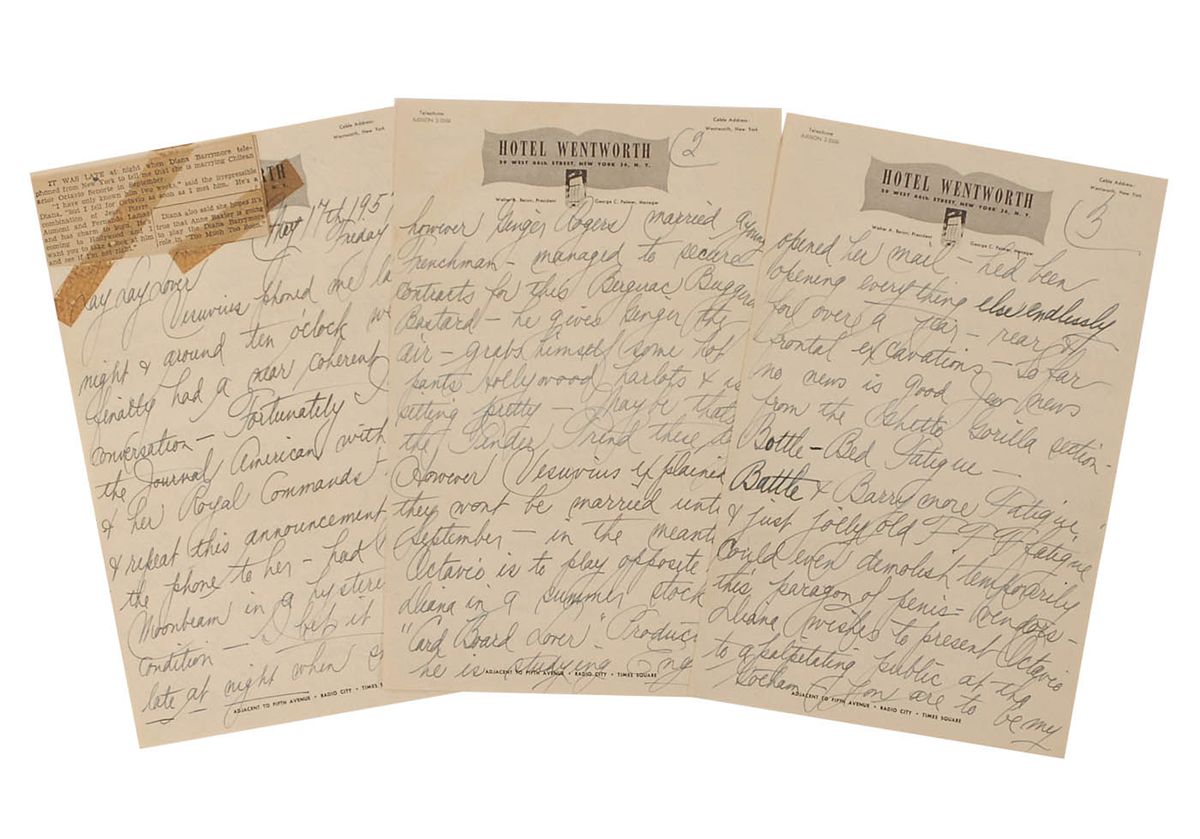 IT WAS LATE at night when Diana Barrymore tele-
phoned from New York to tell me that she is marrying Chilean
actor Octavio Senorie in September.
"I have only known him two weeks," said the irrepressible
Diana. "But I fell for Octavio as soon as I met him. He's a
combination of Jean Pierre
Aumont and Fernando Lamas
and has charm to burn. He's
coming to Hollywood and I
want you to take a look at him
and see if I'm not right."
Diana also said she hopes it's
true that Anne Baxter is going
to play the Diana Barrymore
role in "Too Much Too Soon."
Cable Address
Wentworth, New York
May 17th, 195
Friday
Vesuvius phoned me la
night & around ten o'clock we
finally had a near coherent
conversation – Fortunately I
the Journal American with
& her Royal Commands
& repeat this announcement
the phone to her – had
Moonbeam in a hysteri
condition – I bets it
late at night when
ADJACENT TO FIFTH AVENUE • RADIO CITY • TIMES SQUARE
Telephone
Cable Address
Wentworth, New York
HOTEL WENTWORTH
59 WEST 46th STREET, NEW YORK 36, N. Y.
2
President
George C. Palmer, Manager
however Ginger Rogers married a young
Frenchman – managed to secure
contracts for this Bergerac Buggering
Bastard – he gives Ginger the
air – grabs himself some hot
pants Hollywood harlots & is
sitting pretty – Maybe thats
the Tender Trend these d
However Vesuvius explained
they wont be married unti
September – in the meant
Octavio is to play opposite
Diana in a summer stock
"Card Board Lover" Produc
he is studying Eng
ADJACENT TO FIFTH AVENUE • RADIO CITY • TIMES SQUARE
Telephone
Cable Address
Wentworth, New York
HOTEL WENTWORTH
59 WEST 46th STREET, NEW YORK 36, N. Y.
3
President
George C. Palmer, Manager
opened her mail – hed been
opening everything else endlessly
for over a year – rear &
frontal excavations – So far
no news is good Jew news
from the Ghetto Gorilla section –
Bottle – Bed Fatigue –
Battle & Barrymore Fatigue
& just jolly old fatigue
could even demolish temporarily
this paragon of penis –
Diana wishes to present Octavio
to a palpitating public at the
& you are to be my
ADJACENT TO FIFTH AVENUE • RADIO CITY • TIMES SQUARE